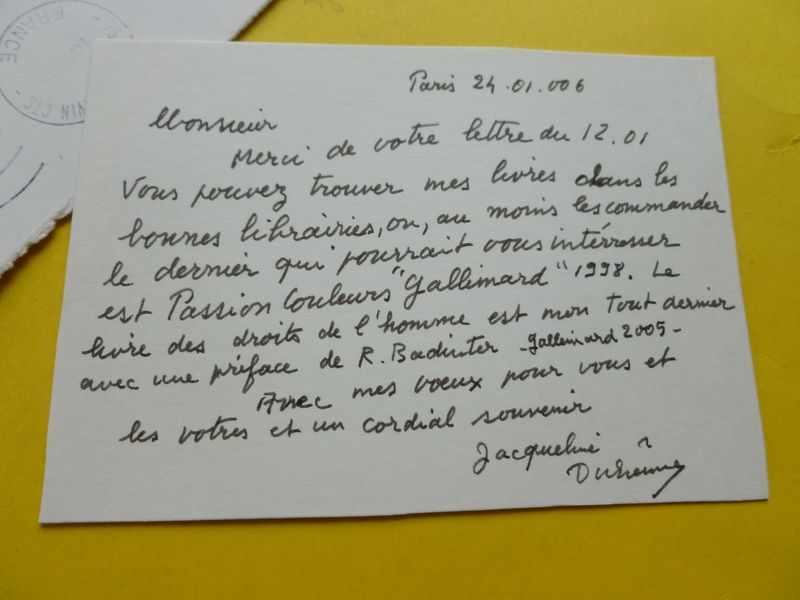 FRANCE
VIN CTC
Paris 24.01.006
Monsieur
Merci de votre lettre du 12.01
Vous pouvez trouver mes livres dans les
bonnes librairies, ou, au moins les commander
le dernier qui pourrait vous intérresser
est Passion Couleurs "Gallimard" 1998. Le
livre des droits de l'homme est mon tout dernier
avec une préface de R. Badinter - Gallimard 2005 -
Avec mes voeux pour vous et
les votres et un cordial souvenir
Jacqueline
Duhême